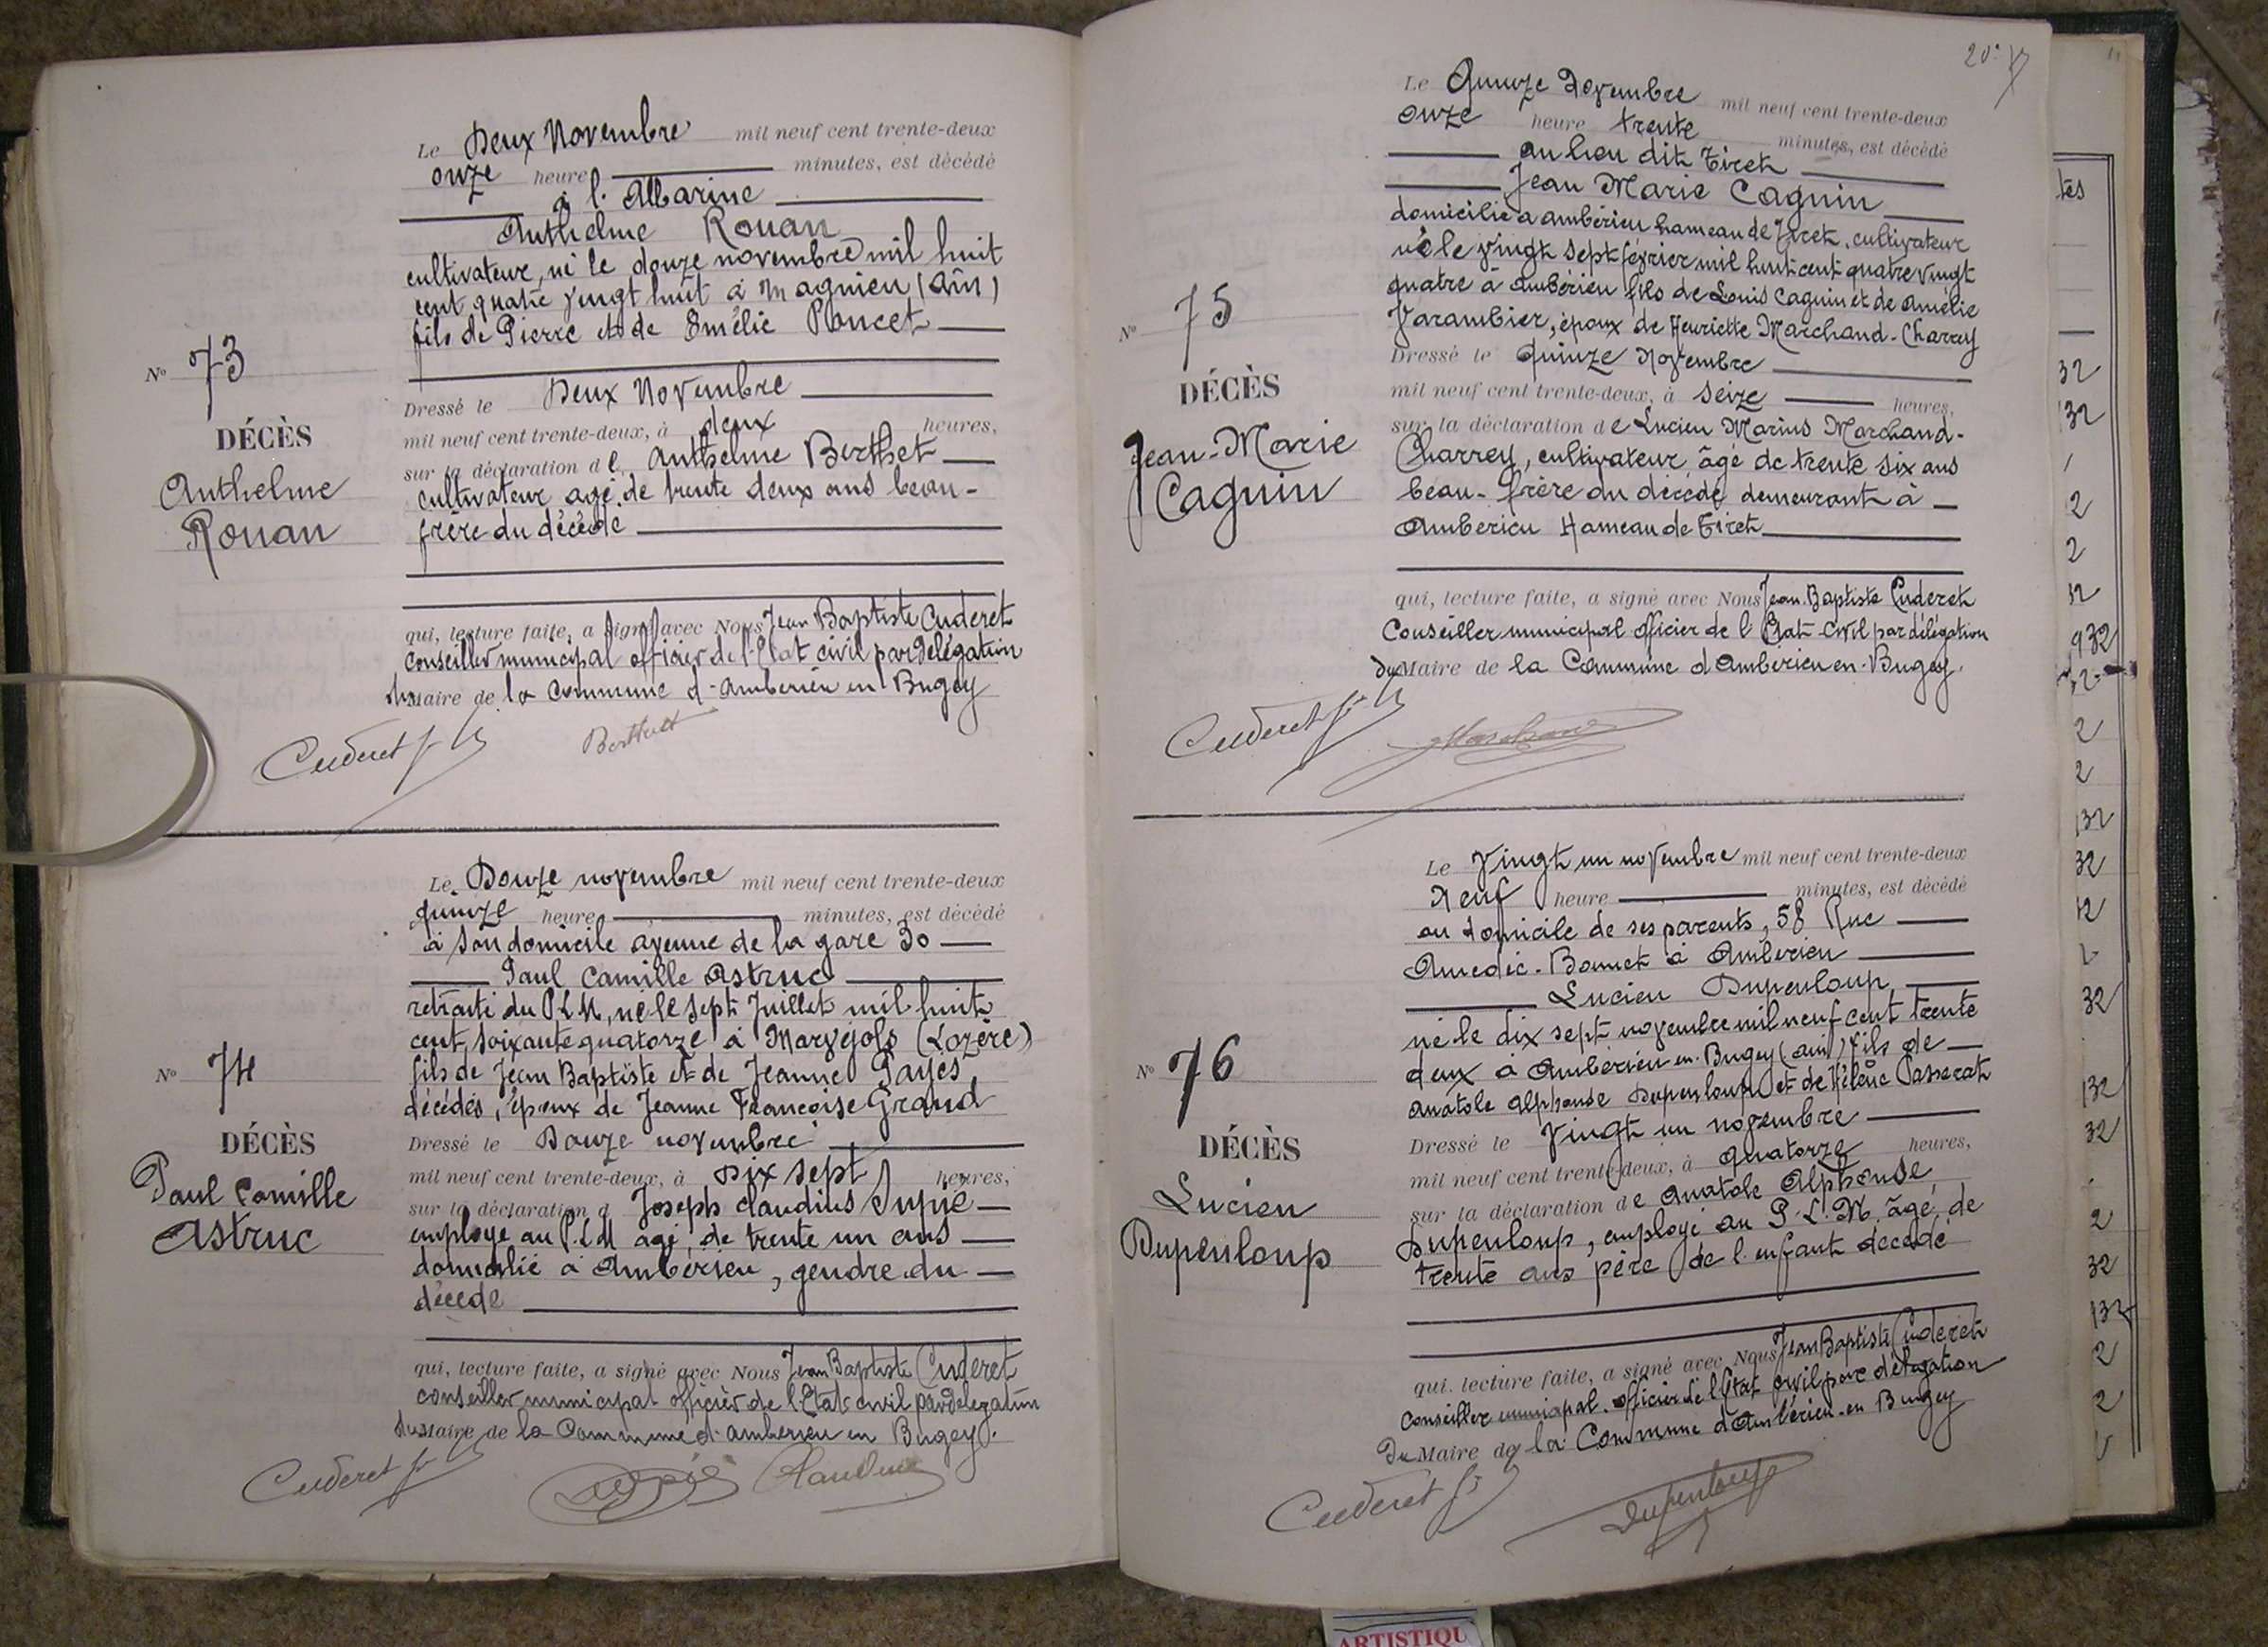 Le Deux Novembre mil neuf cent trente-deux
onze heure minutes, est décédé
à l'Albarine
Anthelme Rouan
cultivateur, né le douze novembre mil huit
cent quatre vingt huit à Magnieu (Ain)
fils de Pierre et de Emélie Poncet
N° 73
DÉCÈS
Anthelme
Rouan
Dressé le Deux Novembre
mil neuf cent trente-deux, à deux heures,
sur la déclaration de Anthelme Berthet
cultivateur agé de trente deux ans beau-
frère du décédé
qui, lecture faite, a signé avec Nous Jean Baptiste Cuderet
Conseiller municipal officier de l'Etat civil par délégation
du Maire de la Commune d'Amberieu en Bugey
Cuderet Berthet
Le Douze novembre mil neuf cent trente-deux
quinze heure minutes, est décédé
à son domicile avenue de la gare 30
Paul Camille Astruc
retraité du P.L.M, né le sept Juillet mil huit
cent soixante quatorze à Marvejols (Lozère)
fils de Jean Baptiste et de Jeanne Pagès
décédés, époux de Jeanne Françoise Grand
N° 74
DÉCÈS
Paul Camille
Astruc
Dressé le Douze novembre
mil neuf cent trente-deux, à Dix sept heures,
sur la déclaration d Joseph Claudius Supié
employé au P.L.M agé de trente un ans
domicilié à Ambérieu, gendre du
décédé
qui, lecture faite, a signé avec Nous Jean Baptiste Cuderet
conseiller municipal officier de l'Etat civil par délégation
du Maire de la Commune d'Amberieu en Bugey.
Cuderet
20
Le Quinze Novembre mil neuf cent trente-deux
onze heure trente minutes, est décédé
au lieu dit Tiret
Jean Marie Caguin
domicilié à Ambérieu hameau de Tiret, cultivateur
né le vingt sept février mil huit cent quatre vingt
quatre à Ambérieu fils de Louis Caguin et de Amélie
Varambier, époux de Henriette Marchand-Charrey
N° 75
DÉCÈS
Jean-Marie
Caguin
Dressé le quinze Novembre
mil neuf cent trente-deux, à seize heures,
sur la déclaration de Lucien Marius Marchand-
Charrey, cultivateur âgé de trente six ans
beau-frère du décédé demeurant à
Ambérieu Hameau de Tiret
qui, lecture faite, a signé avec Nous Jean Baptiste Cuderet
Conseiller municipal officier de l'Etat-Civil par délégation
du Maire de la Commune d'Ambérieu en-Bugey.
Cuderet Marchand
Le Vingt un novembre mil neuf cent trente-deux
Neuf heure minutes, est décédé
au domicile de ses parents, 58 Rue
Amédée-Bonnet à Ambérieu
Lucien Dupenloup
né le dix sept novembre mil neuf cent trente
deux à Ambérieu en-Bugey (Ain) fils de
Anatole Alphonse Dupenloup et de Hélène Passerat
N° 76
DÉCÈS
Lucien
Dupenloup
Dressé le Vingt un novembre
mil neuf cent trente-deux, à quatorze heures,
sur la déclaration de Anatole Alphonse
Dupenloup, employé au P.L.M. âgé de
trente ans père de l'enfant décédé
qui, lecture faite, a signé avec Nous Jean Baptiste Cuderet
Conseiller municipal officier de l'Etat civil par délégation
Du Maire de la Commune d'Ambérieu-en Bugey
Cuderet Dupenloup
tés
32
132
2
2
32
932
2
2
132
32
32
132
32
2
32
132
2
2
ARTISTIQU